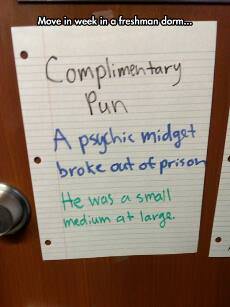 Move in week in a freshman dorm...
Complimentary
Pun
A psychic midget
broke out of prison
He was a small
medium at large.